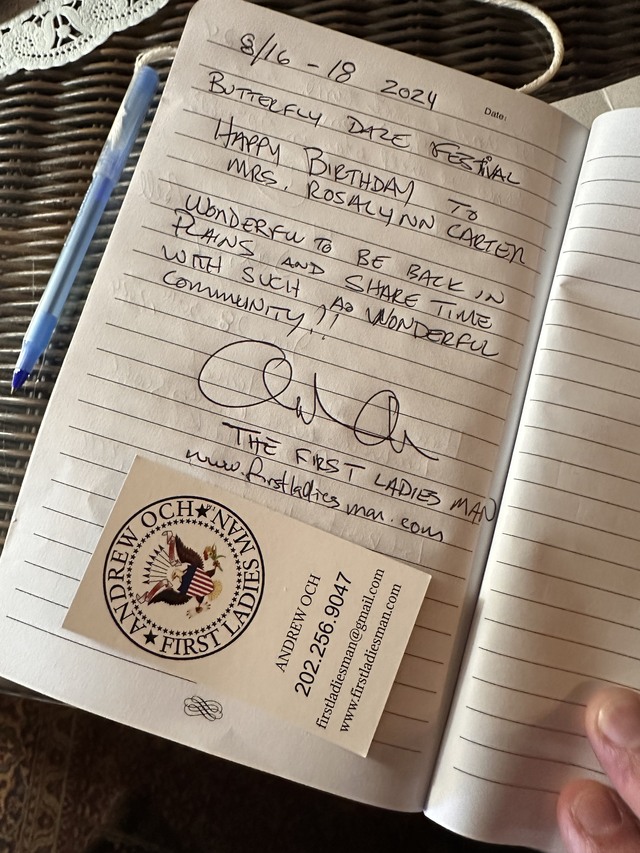 8/16 - 18 2024
Date:
BUTTERFLY DAZE FESTIVAL
HAPPY BIRTHDAY TO
MRS. ROSALYNN CARTER
WONDERFUL TO BE BACK IN
PLAINS AND SHARE TIME
WITH SUCH A WONDERFUL
COMMUNITY!!
THE FIRST LADIES MAN
www.firstladiesman.com
ANDREW OCH ★ FIRST LADIES MAN ★
ANDREW OCH
202.256.9047
firstladiesman@gmail.com
www.firstladiesman.com